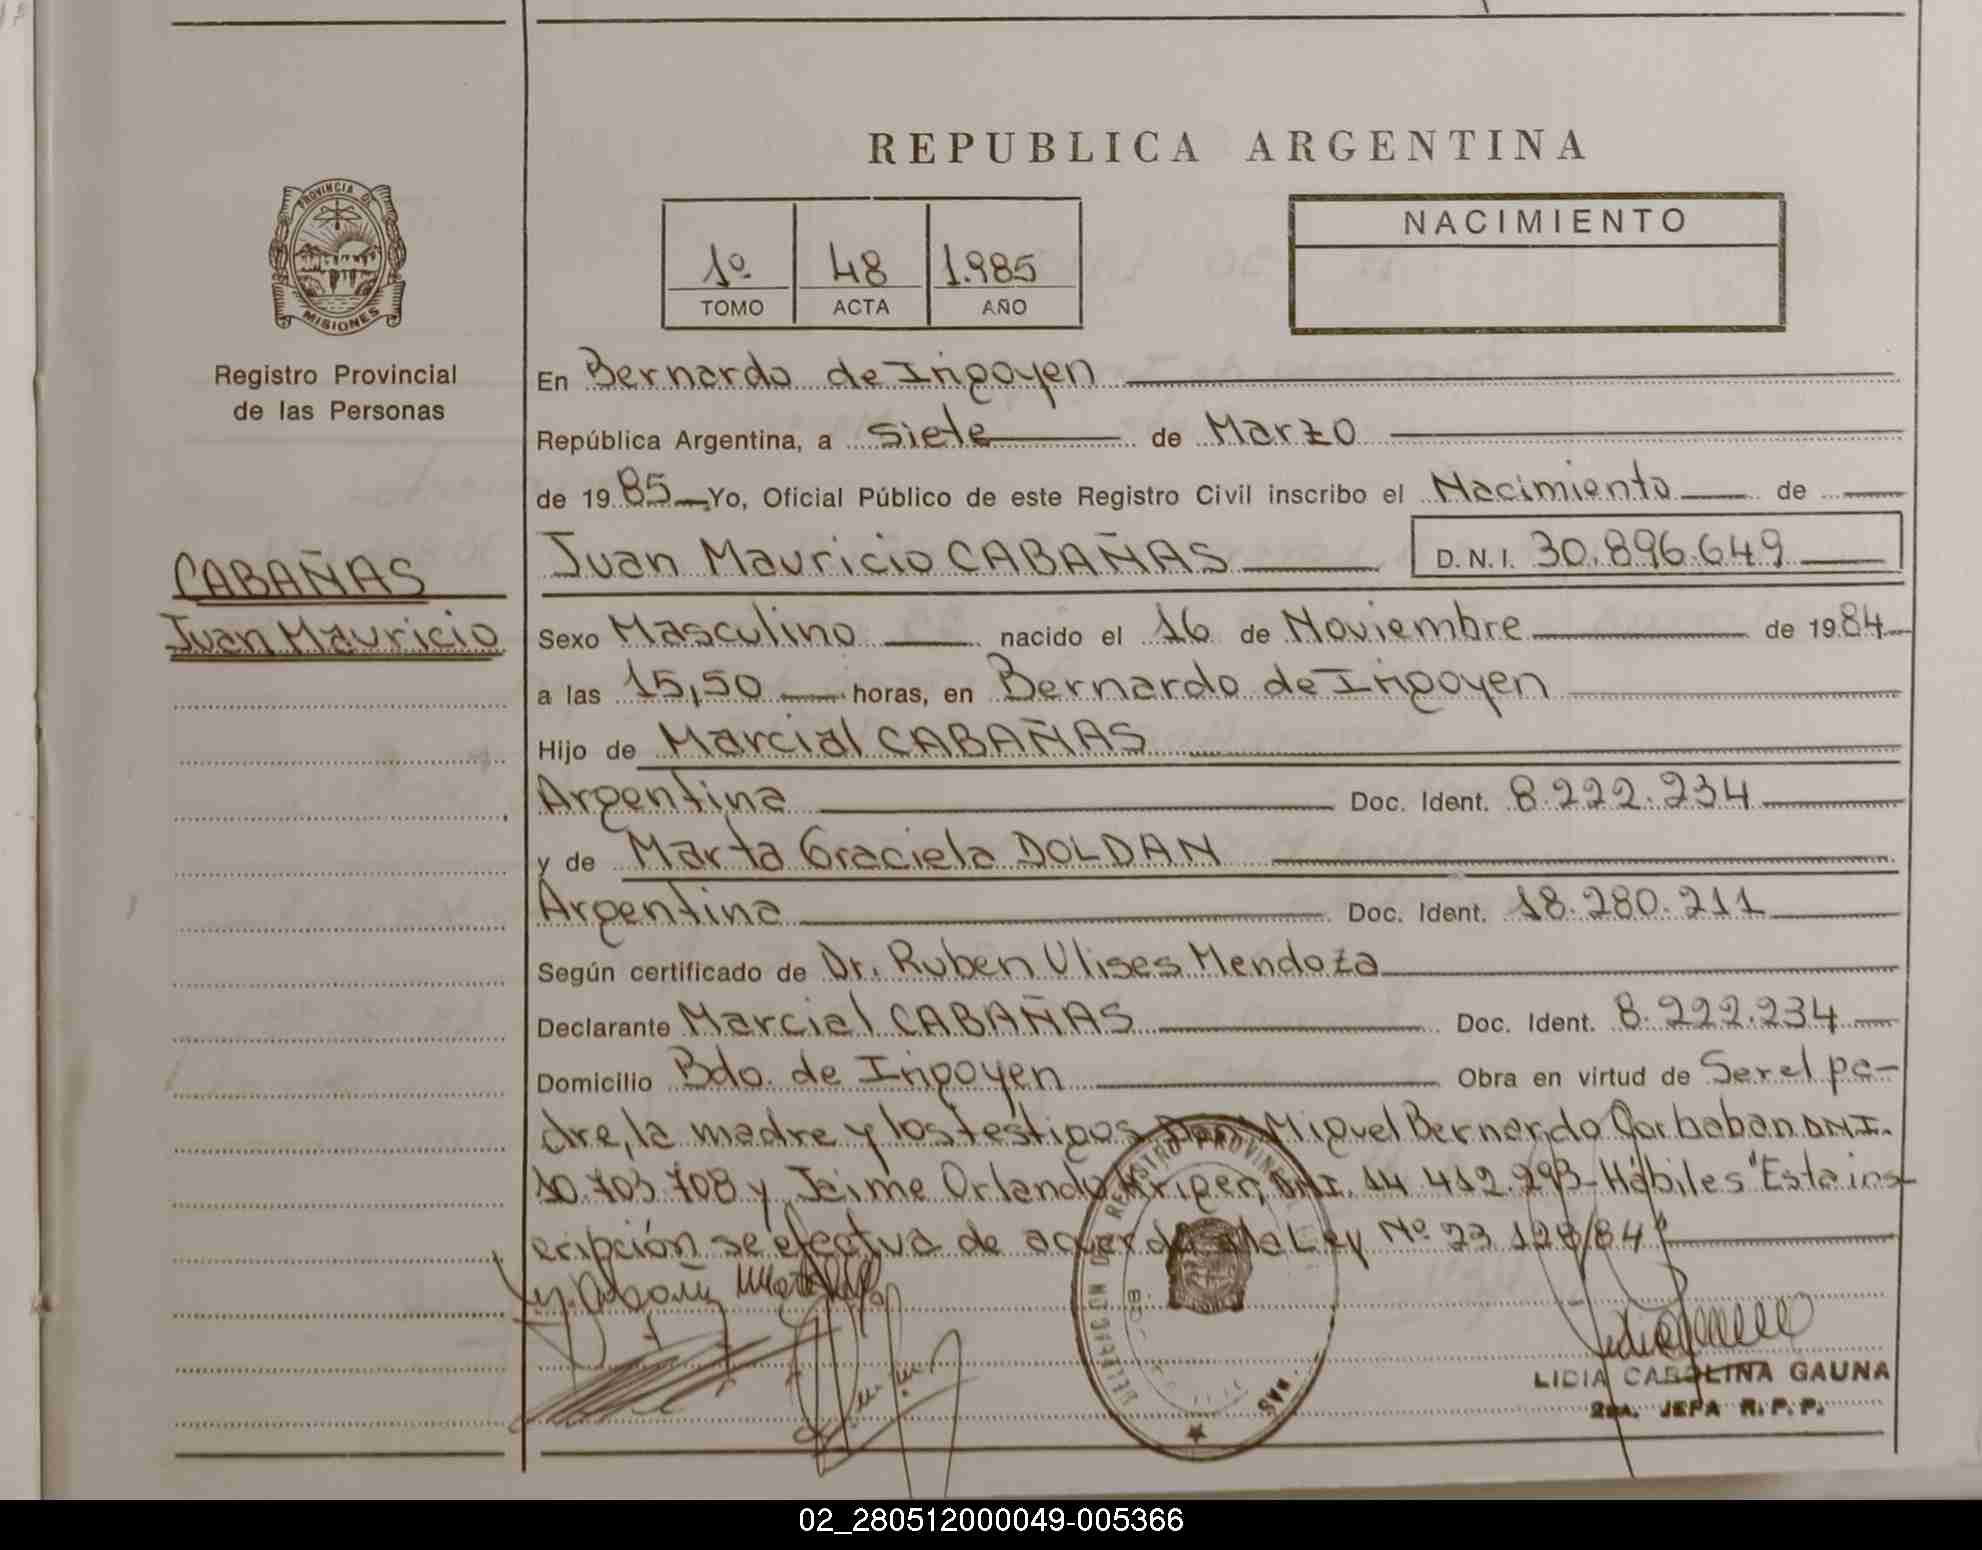 REPUBLICA ARGENTINA
PROVINCIA DE
MISIONES
Registro Provincial
de las Personas
CABAÑAS
Juan Mauricio
1º 48 1.985
TOMO ACTA AÑO
NACIMIENTO
En Bernardo de Irigoyen
República Argentina, a siete de Marzo
de 19 85 Yo, Oficial Público de este Registro Civil inscribo el Nacimiento de
Juan Mauricio CABAÑAS D.N.I. 30.896.649
Sexo Masculino nacido el 16 de Noviembre de 1984
a las 15,50 horas, en Bernardo de Irigoyen
Hijo de Marcial CABAÑAS
Argentina Doc. Ident. 8.222.234
y de Marta Graciela DOLDAN
Argentina Doc. Ident. 18.280.211
Según certificado de Dr. Ruben Ulises Mendoza
Declarante Marcial CABAÑAS Doc. Ident. 8.222.234
Domicilio Bdo. de Irigoyen Obra en virtud de Ser el pa-
dre, la madre y los testigos Don Miguel Bernardo DNI.
10.703.708 y Jaime Orlando DNI. 14.412.293 Hábiles "Esta ins-
cripción se efectua de acuerdo a la Ley Nº 23.128/84"
DELEGACION DE REGISTRO PROVINCIAL
LIDIA CAROLINA GAUNA
2da. JEFA R.P.P.
02_280512000049-005366